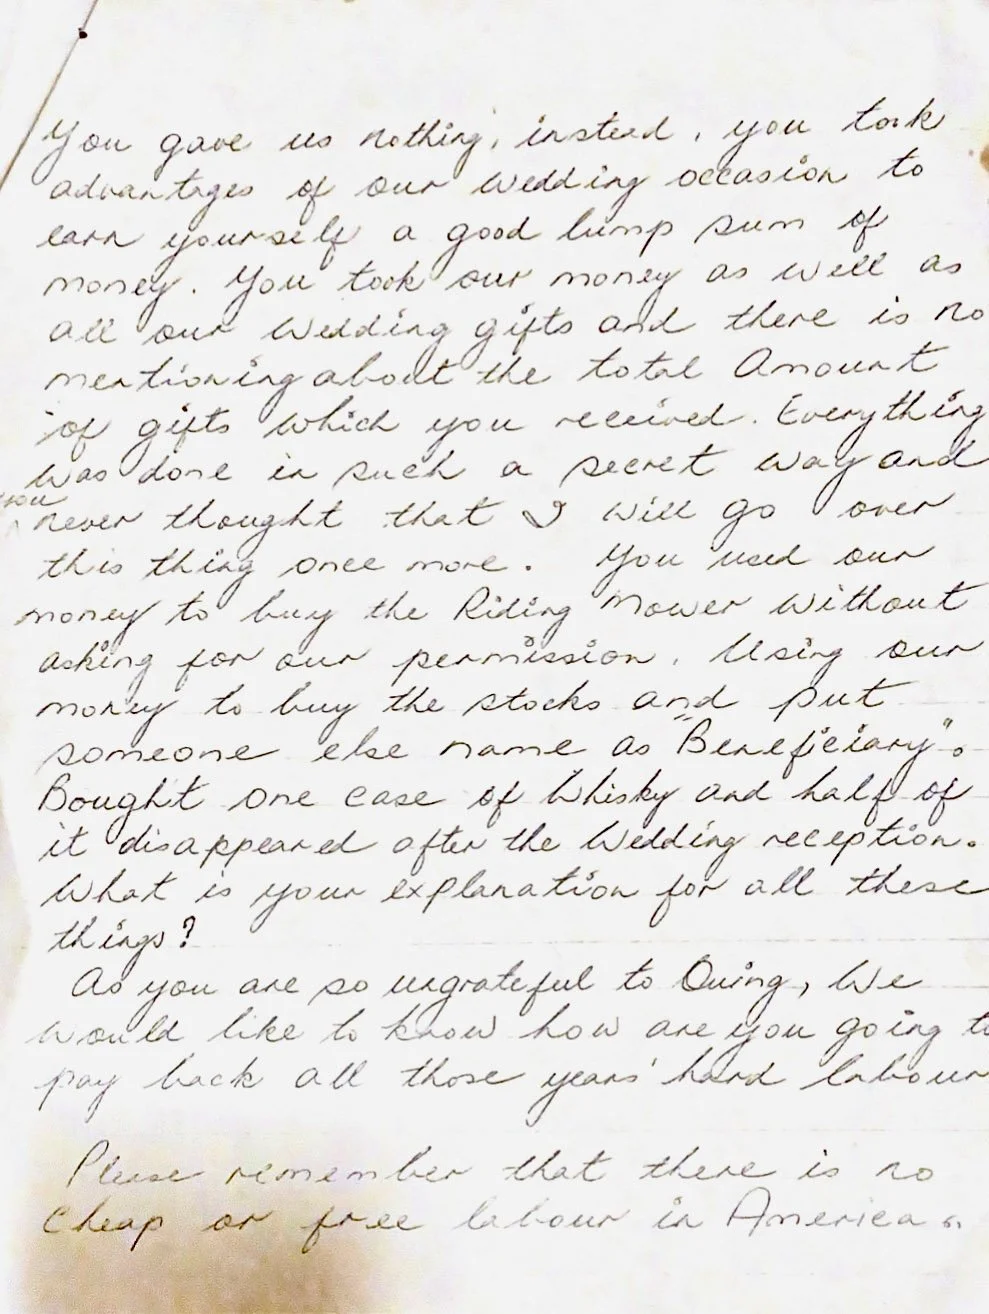 You gave us nothing, instead, you took
advantages of our wedding occasion to
earn yourself a good lump sum of
money. You took our money as well as
all our Wedding gifts and there is no
mentioning about the total Amount
of gifts which you received. Everything
was done in such a secret way and
you
never thought that I will go over
this thing once more. You used our
money to buy the Riding Mower without
asking for our permission. Using our
money to buy the stocks and put
someone else name as "Beneficiary".
Bought one case of Whisky and half of
it disappeared after the Wedding reception.
What is your explanation for all these
things?
As you are so ungrateful to Quing, We
would like to know how are you going to
pay back all those years' hard labour
Please remember that there is no
Cheap or free labour in America.